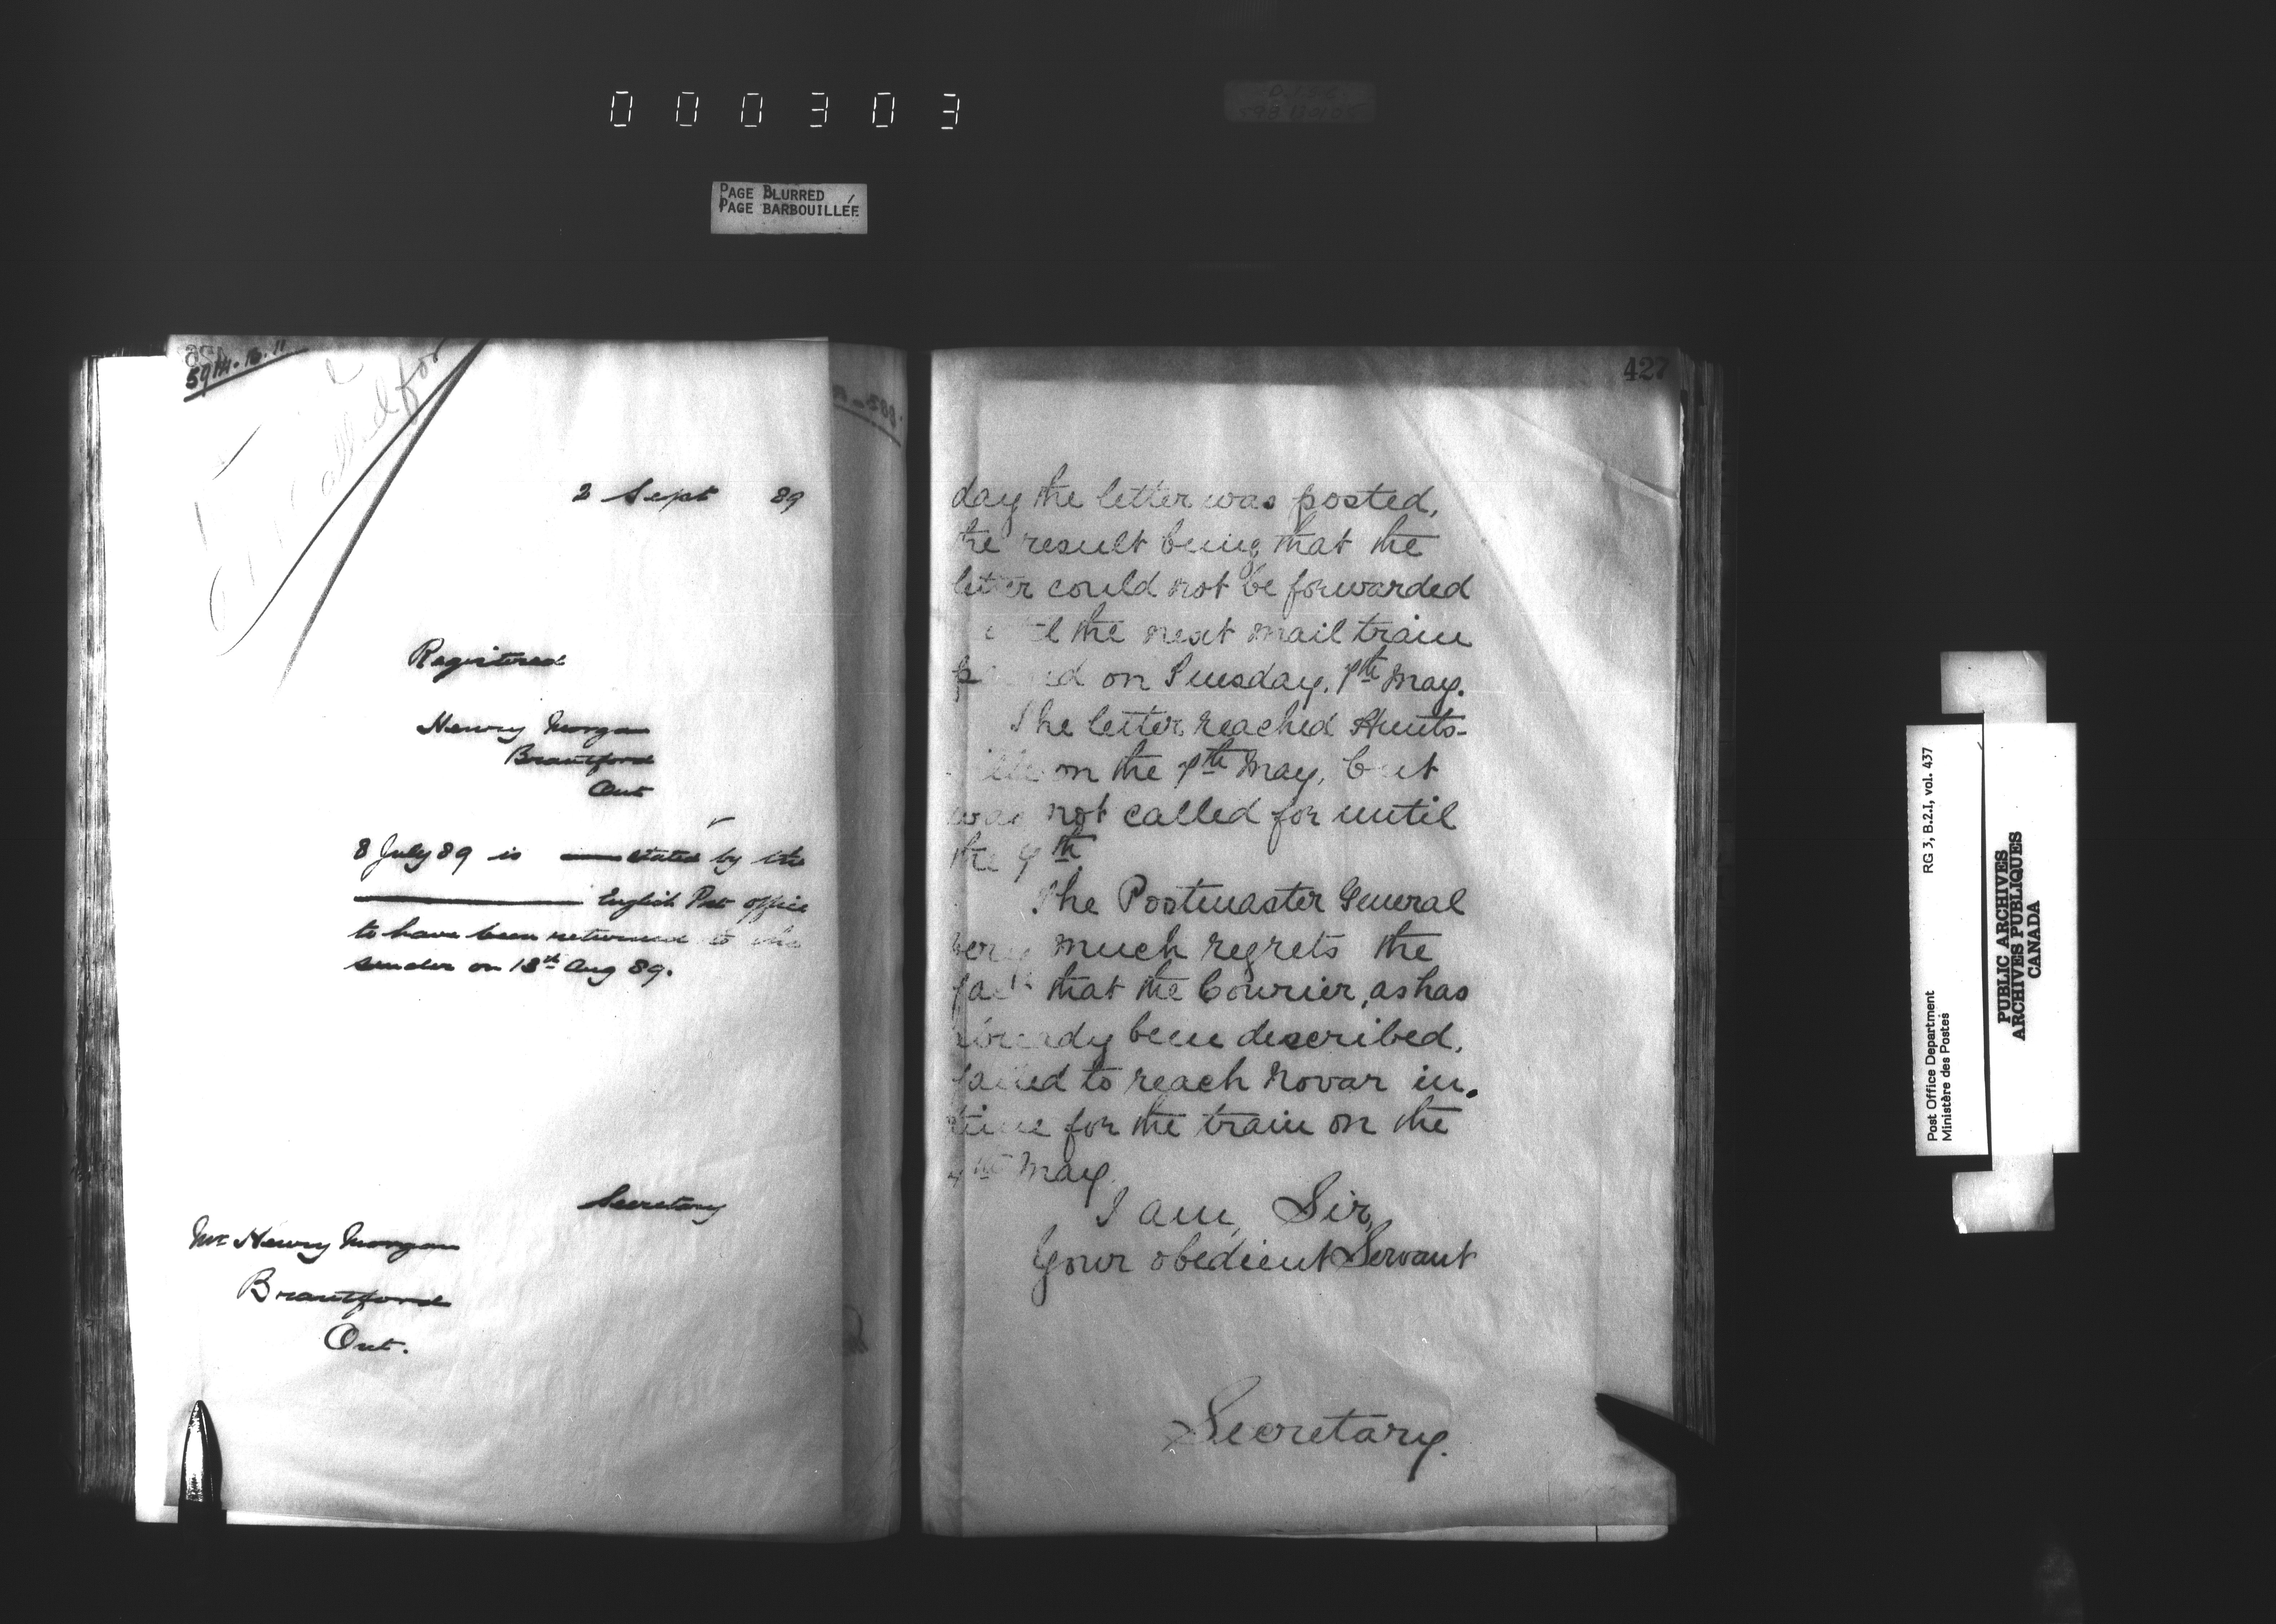 000303
PAGE BLURRED
PAGE BARBOUILLÉE
called for
2 Sept 89
Registered
Henry Morgan
Brantford
Ont
8 July 89 is stated by the
English Post office
to have been returned to the
sender on 13th Aug 89.
Secretary
Mr Henry Morgan
Brantford
Ont.
427
day the letter was posted,
the result being that the
letter could not be forwarded
the next mail train
on Tuesday, 7th May.
The letter reached Hunts-
ville on the 7th May, but
was not called for until
the 9th
The Postmaster General
very much regrets the
fact that the Courier, as has
already been described,
failed to reach Novar in
time for the train on the
May.
I am, Sir,
Your obedient Servant
Secretary.
Post Office Department
Ministère des Postes
RG 3, B.2.I, vol. 437
PUBLIC ARCHIVES
ARCHIVES PUBLIQUES
CANADA